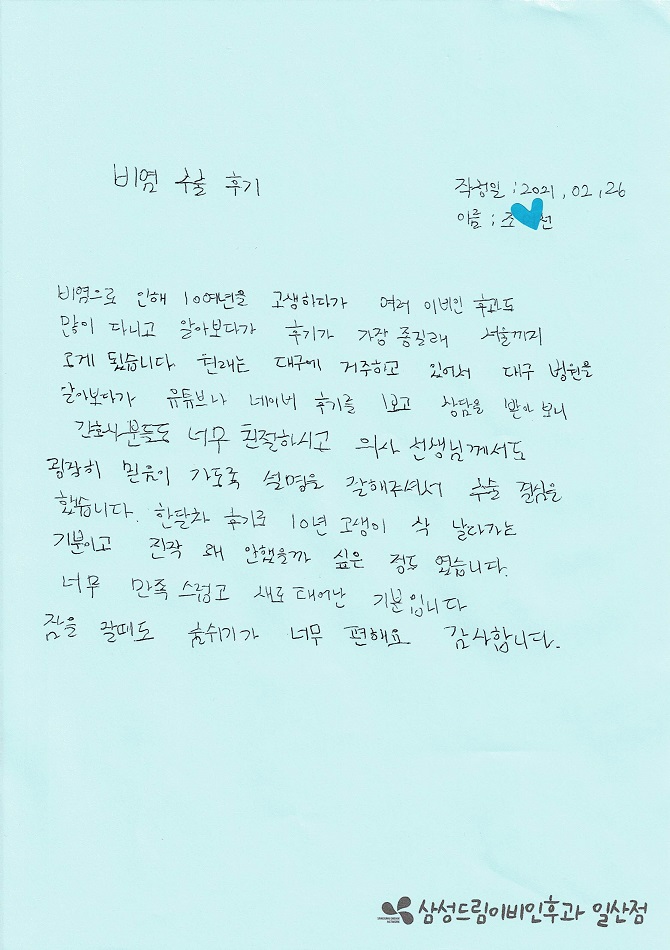 비염 수술 후기
작성일 : 2021, 02, 26
이름 : 조 선
비염으로 인해 10여년을 고생하다가 여러 이비인 후과도
많이 다니고 알아보다가 후기가 가장 좋길래 서울까지
오게 됬습니다 현재는 대구에 거주하고 있어서 대구 병원을
알아보다가 유튜브나 네이버 후기를 보고 상담을 받아 보니
간호사분들도 너무 친절하시고 의사 선생님께서도
굉장히 믿음이 가도록 설명을 잘해주셔서 수술 결심을
했습니다. 한달차 후기로 10년 고생이 싹 날라가는
기분이고 진작 왜 안했을까 싶은 정도 였습니다.
너무 만족 스럽고 새로 태어난 기분입니다
잠을 잘때도 숨쉬기가 너무 편해요 감사합니다.
삼성드림이비인후과 일산점